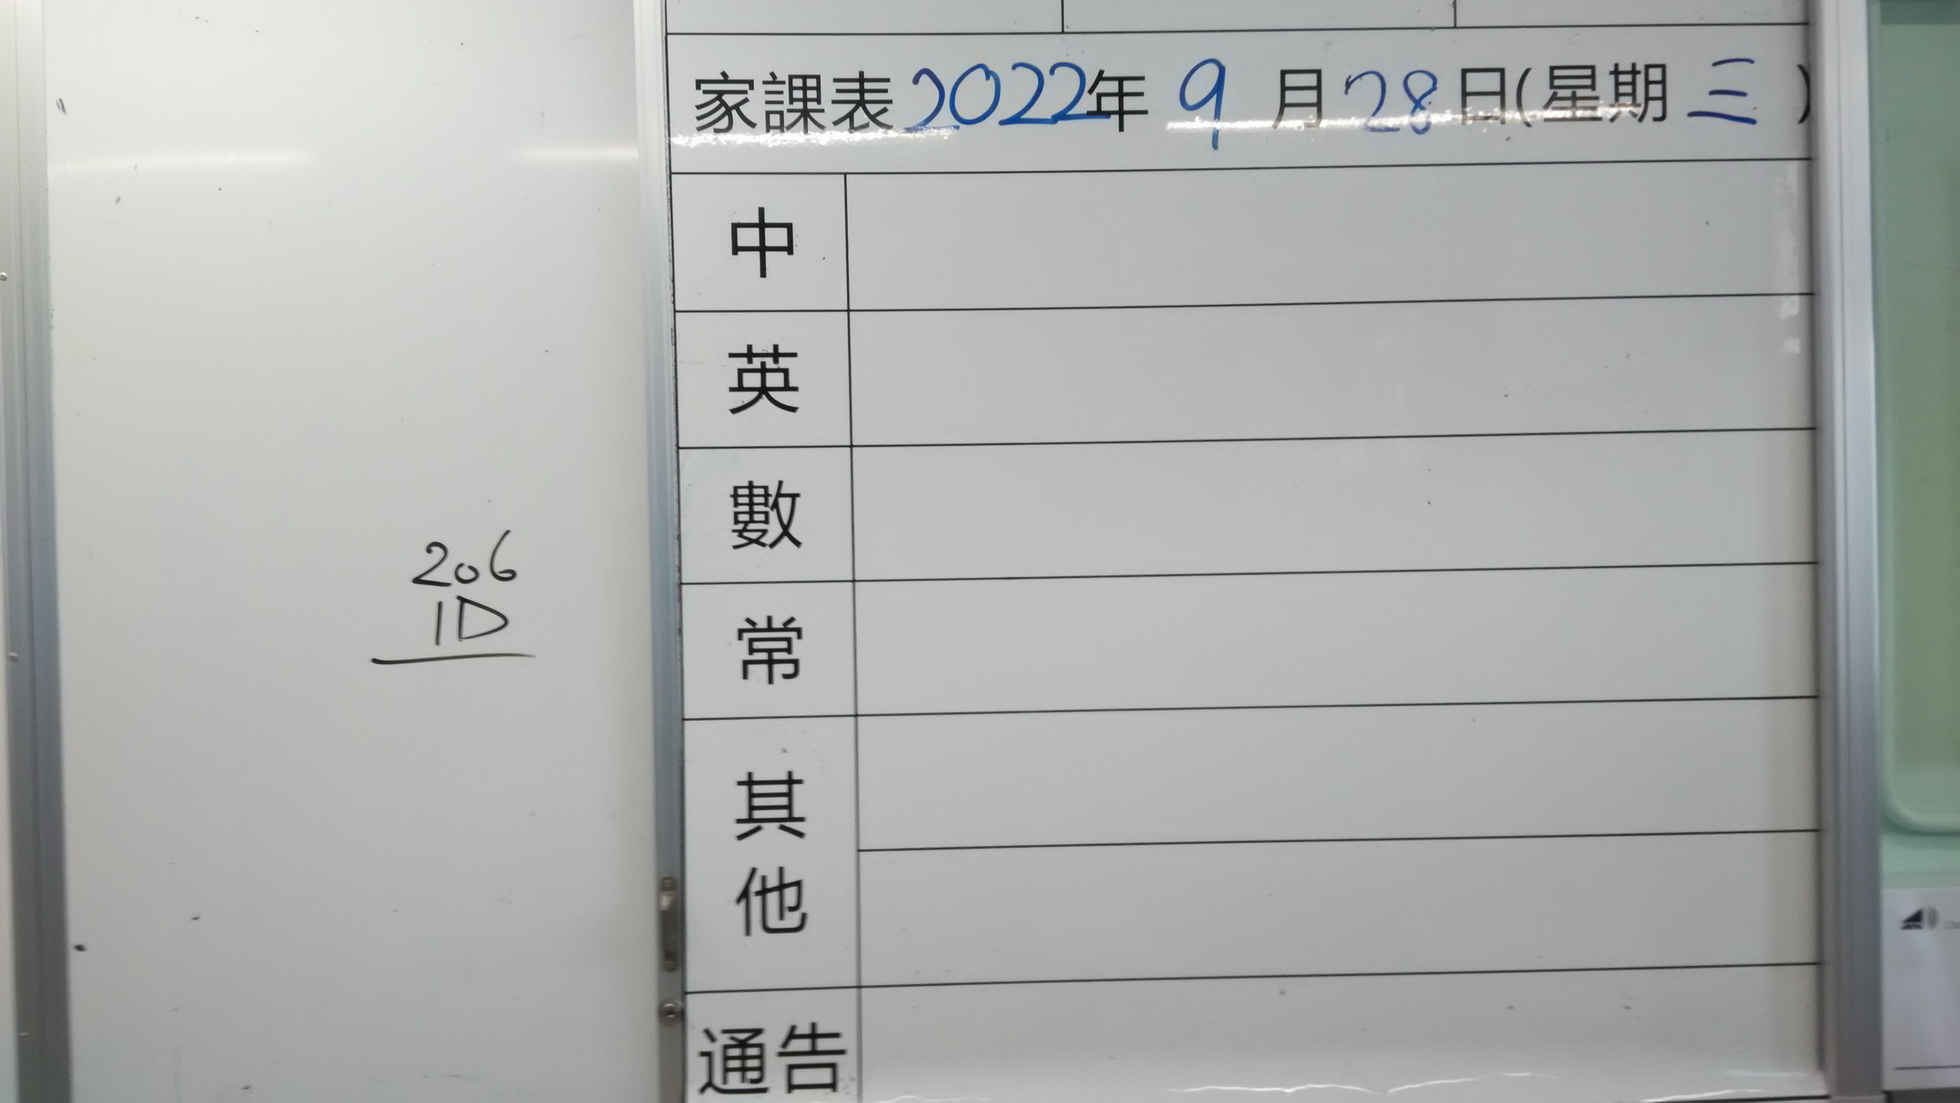 206
1D
家課表2022年 9 月28日(星期 三 )
中
英
數
常
其
他
通告